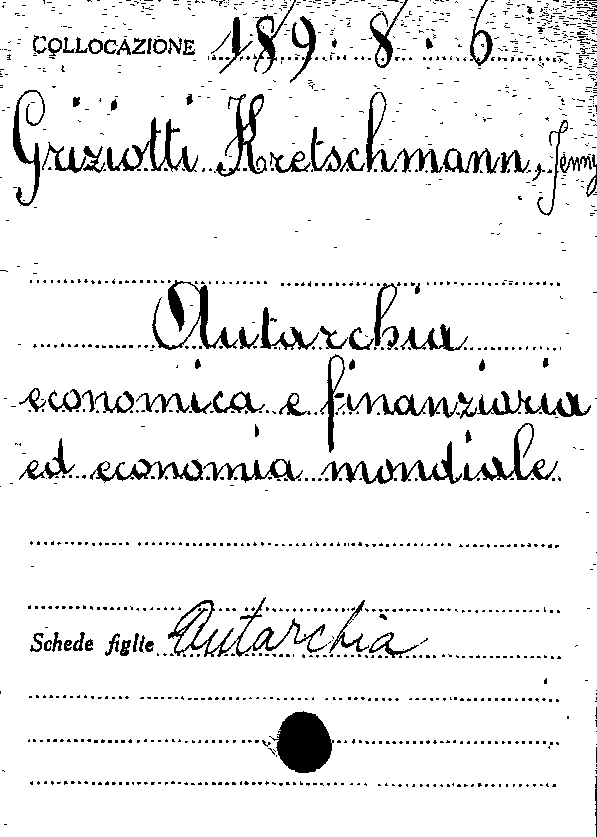 COLLOCAZIONE 189.8.6
Griziotti Kretschmann, Jenny
Autarchia
economica e finanziaria
ed economia mondiale
Schede figlie Autarchia